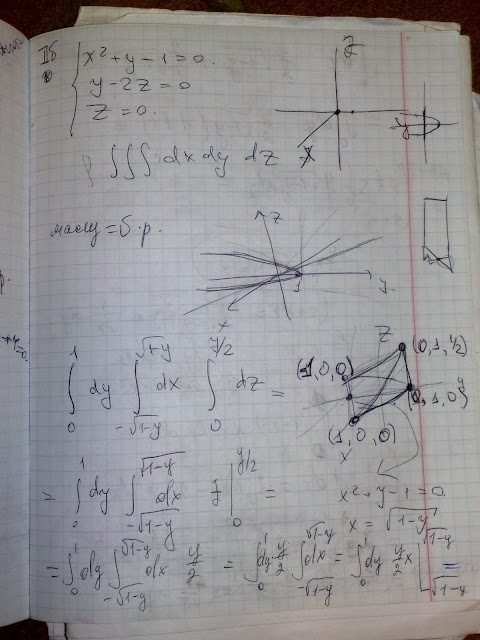 IIб
{ x² + y - 1 = 0.
y - 2z = 0
z = 0.
ρ ∫∫∫ dx dy dz
z
x
y
массу = б.р.
z
y
x
1
∫₀¹ dy ∫_{-√(1-y)}^{√(1-y)} dx ∫₀^{y/2} dz =
z
(0, 1, ½)
(-1, 0, 0)
(0, 1, 0)
y
(1, 0, 0)
x
= ∫₀¹ dy ∫_{-√(1-y)}^{√(1-y)} dx z |₀^{y/2} =
x² + y - 1 = 0
x = √(1-y)
= ∫₀¹ dy ∫_{-√(1-y)}^{√(1-y)} dx y/2 = ∫₀¹ dy y/2 ∫_{-√(1-y)}^{√(1-y)} dx = ∫₀¹ dy y/2 x |_{-√(1-y)}^{√(1-y)} =